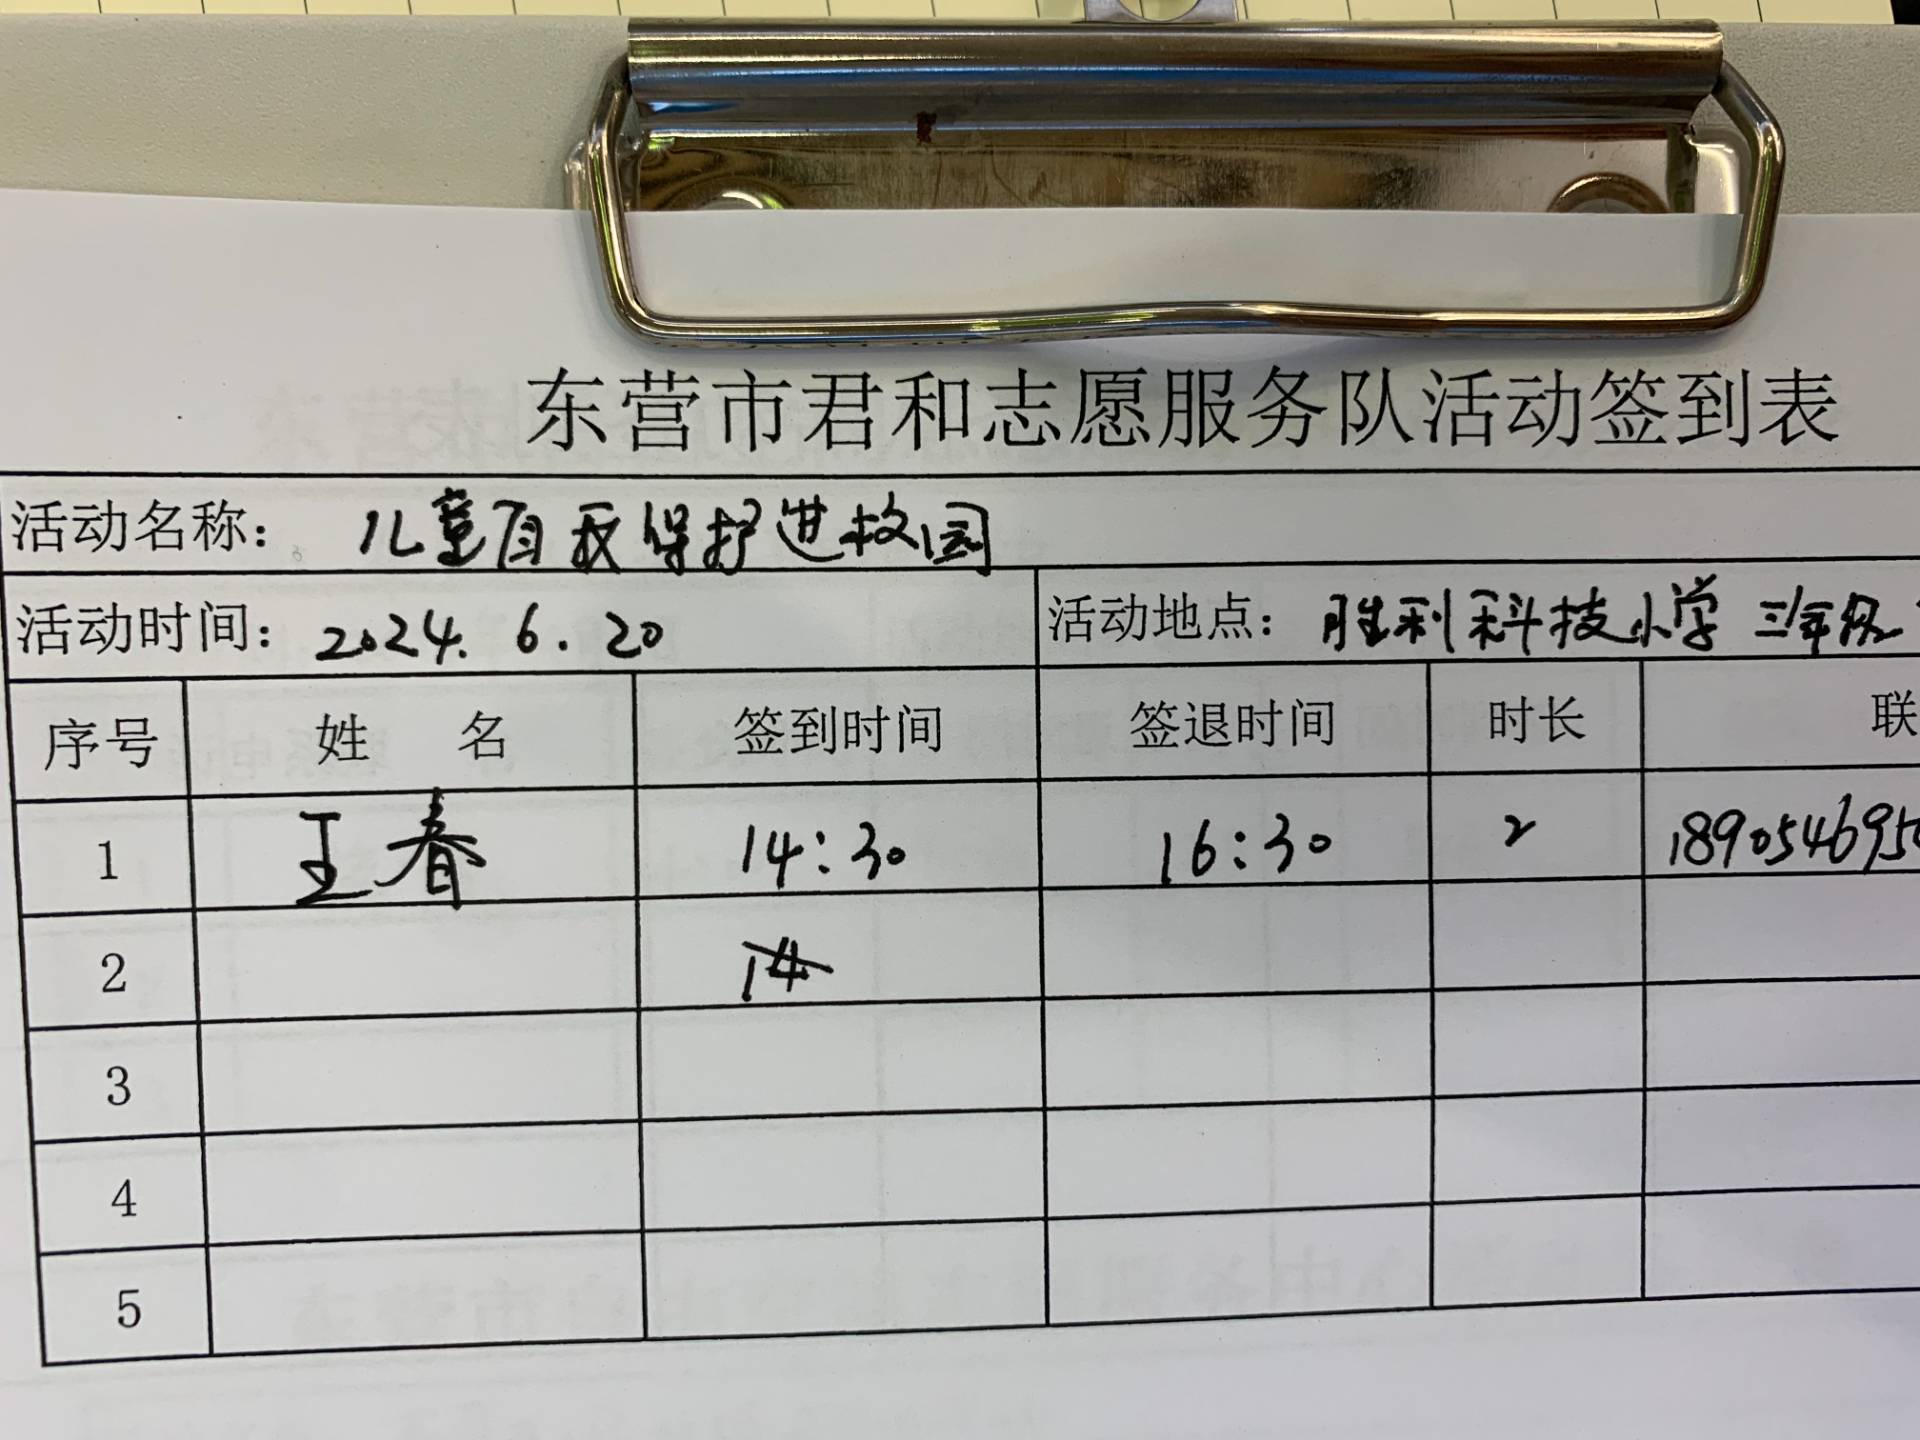 东营市君和志愿服务队活动签到表
活动名称：儿童自我保护进校园
活动时间：2024.6.20 活动地点：胜利科技小学 三年级
序号 姓 名 签到时间 签退时间 时长 联
1 王春 14:30 16:30 2 189054695
2 14
3
4
5